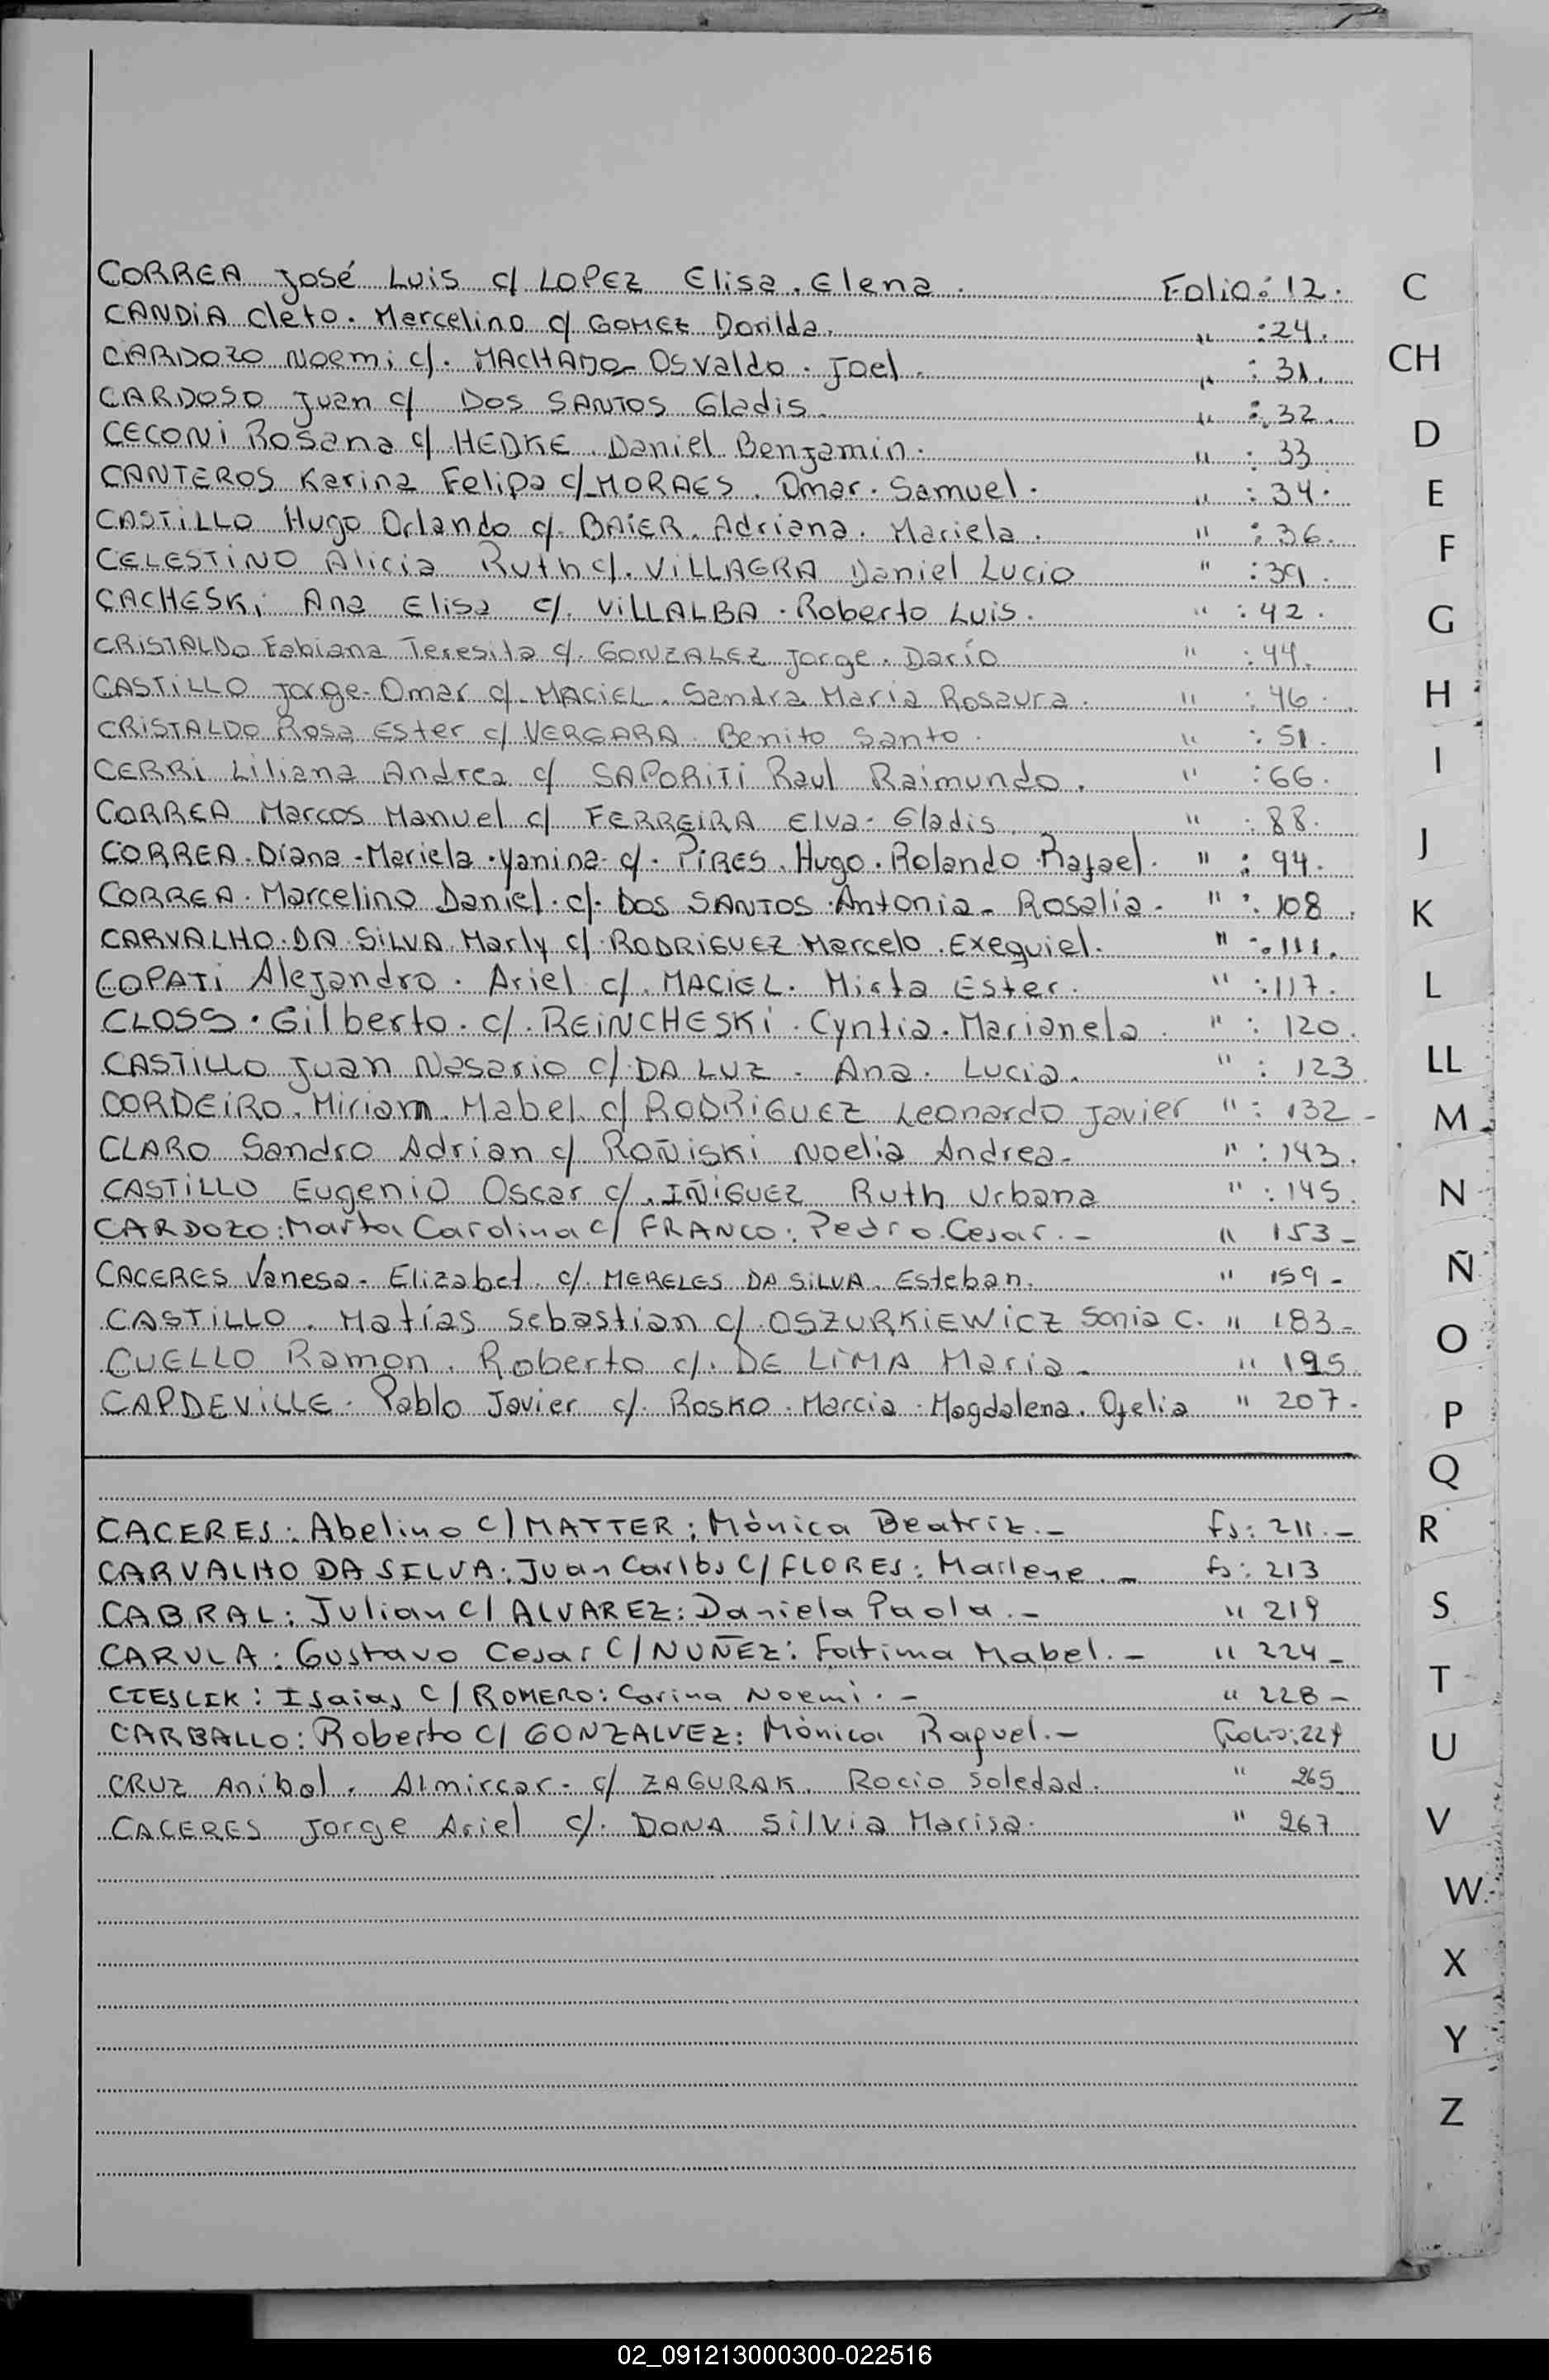 CORREA José Luis c/ LOPEZ Elisa. Elena. Folio: 12.
CANDIA Cleto. Marcelino c/ GOMEZ Dorilda. " : 24.
CARDOZO Noemi c/. MACHADO Osvaldo. Joel. " : 31.
CARDOSO Juan c/ DOS SANTOS Gladis. " : 32.
CECONI Rosana c/ HEDKE. Daniel Benjamin. " : 33
CANTEROS Karina Felipa c/ MORAES. Omar. Samuel. " : 34.
CASTILLO Hugo Orlando c/. BAIER. Adriana. Mariela. " : 36.
CELESTINO Alicia Ruth c/. VILLAGRA Daniel Lucio " : 39.
CACHESKI Ana Elisa c/. VILLALBA. Roberto Luis. " : 42.
CRISTALDO Fabiana Teresita c/. GONZALEZ Jorge. Darío " : 44.
CASTILLO Jorge. Omar c/. MACIEL. Sandra Maria Rosaura. " : 46.
CRISTALDO Rosa Ester c/ VERGARA. Benito Santo. " : 51.
CERRI Liliana Andrea c/ SAPORITI Raul Raimundo. " : 66.
CORREA Marcos Manuel c/ FERREIRA Elva. Gladis. " : 88.
CORREA. Diana. Mariela. Yanina. c/. PIRES. Hugo. Rolando Rafael. " : 94.
CORREA. Marcelino Daniel. c/. DOS SANTOS. Antonia. Rosalia. " : 108.
CARVALHO. DA. SILVA Marly c/. RODRIGUEZ. Marcelo. Exequiel. " : 111.
COPATI Alejandro. Ariel c/. MACIEL. Mirta Ester. " : 117.
CLOSS. Gilberto. c/. REINCHESKI. Cyntia. Marianela. " : 120.
CASTILLO Juan Nasario c/ DA LUZ. Ana. Lucia. " : 123
CORDEIRO. Miriam. Mabel. c/ RODRIGUEZ Leonardo Javier " : 132 -
CLARO Sandro Adrian c/ ROÑISKI Noelia Andrea- " : 143.
CASTILLO Eugenio Oscar c/. IÑIGUEZ Ruth Urbana " : 145.
CARDOZO: Marta Carolina c/ FRANCO: Pedro. Cesar. - " 153 -
CACERES Vanesa. Elizabet. c/. MERELES DA SILVA. Esteban. " 159 -
CASTILLO. Matías Sebastian c/. OSZURKIEWICZ Sonia C. " 183 -
CUELLO Ramon. Roberto c/. DE LIMA Maria. " 195.
CAPDEVILLE. Pablo Javier c/. ROSKO. Marcia. Magdalena. Ofelia " 207.
CACERES: Abelino C/ MATTER: Mónica Beatriz. - fs: 211. -
CARVALHO DA SILVA: Juan Carlos C/ FLORES: Marlene. - fs: 213
CABRAL: Julian C/ ALVAREZ: Daniela Paola. - " 219
CARULA: Gustavo Cesar C/ NUÑEZ: Fatima Mabel. - " 224 -
CIESLIK: Isaias C/ ROMERO: Carina Noemi. - " 228 -
CARBALLO: Roberto C/ GONZALVEZ: Mónica Raquel. - Folio: 229
CRUZ Anibal. Almircar. c/ ZAGURAK. Rocio Soledad. " 265
CACERES Jorge Ariel c/. DONA Silvia Marisa. " 267
C
CH
D
E
F
G
H
I
J
K
L
LL
M
N
Ñ
O
P
Q
R
S
T
U
V
W
X
Y
Z
02_091213000300-022516